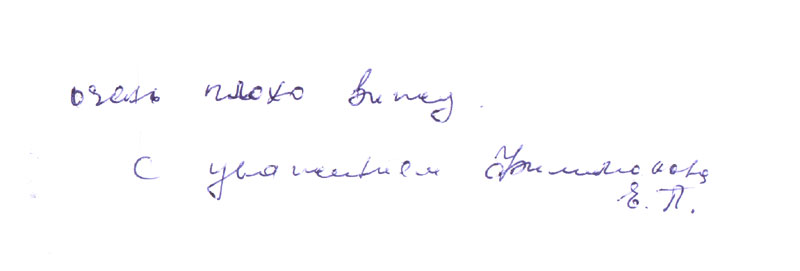 очень плохо вижу.
С уважением Филимонова
Е.П.